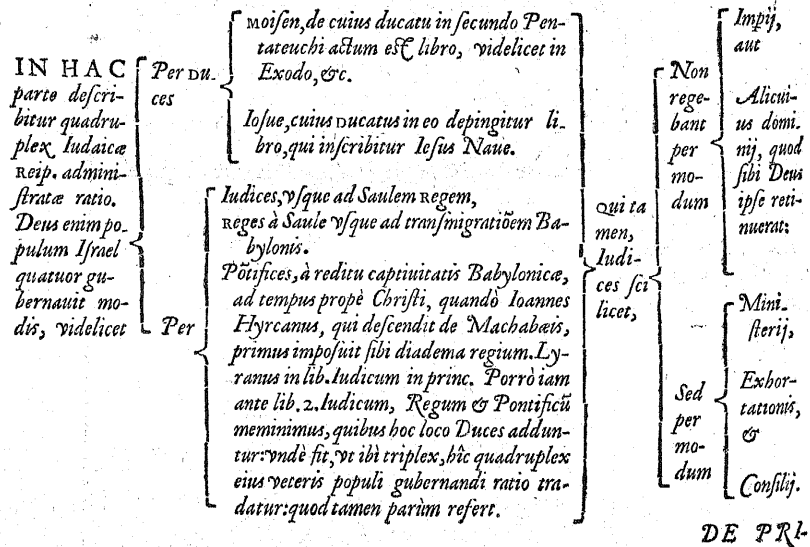 IN HAC
parte descri-
bitur quadru-
plex Iudaicæ
Reip. admini-
stratæ ratio.
Deus enim po-
pulum Israel
quatuor gu-
bernauit mo-
dis, videlicet
Per Du-
ces
Moisen, de cuius ducatu in secundo Pen-
tateuchi actum est libro, videlicet in
Exodo, &c.
Iosue, cuius Ducatus in eo depingitur li-
bro, qui inscribitur Iesus Naue.
Per
Iudices, vsque ad Saulem Regem,
Reges à Saule vsque ad transmigratiōem Ba-
bylonis.
Pōtifices, à reditu captiuitatis Babylonicæ,
ad tempus propè Christi, quando Ioannes
Hyrcanus, qui descendit de Machabæis,
primus imposuit sibi diadema regium. Ly-
ranus in lib. Iudicum in princ. Porrò iam
ante lib. 2. Iudicum, Regum & Pontificū
meminimus, quibus hoc loco Duces addun-
tur: vndè fit, vt ibi triplex, hîc quadruplex
eius veteris populi gubernandi ratio tra-
datur: quod tamen parùm refert.
Qui ta
men,
Iudi-
ces sci
licet,
Non
rege-
bant
per
mo-
dum
Impij,
aut
Alicui-
us domi-
nij, quod
sibi Deus
ipse reti-
nuerat:
Sed
per
mo-
dum
Mini-
sterij,
Exhor-
tationis,
&
Consilij.
DE PRI-